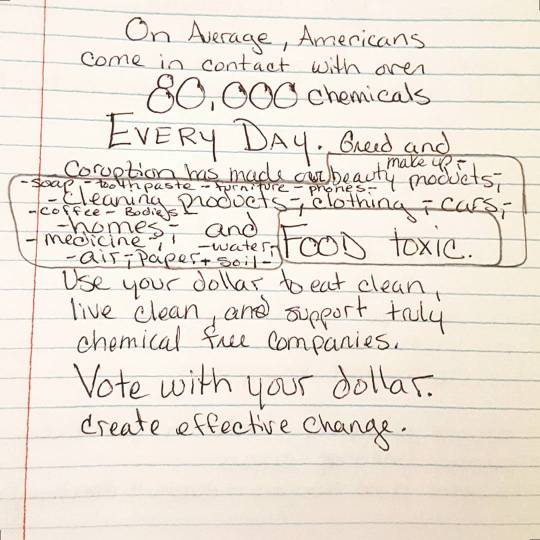 On Average, Americans
come in contact with over
80,000 chemicals
EVERY DAY. Greed and
Coruption has made our beauty products,-
make up,-
-soap,-toothpaste-furniture-phones-
-cleaning products-, clothing,-cars,-
-coffee-Bodies-
-homes- and
-medicine-, -water,- FOOD toxic.
-air,-paper+soil-
Use your dollar to eat clean,
live clean, and support truly
chemical free companies.
Vote with your dollar.
Create effective change.